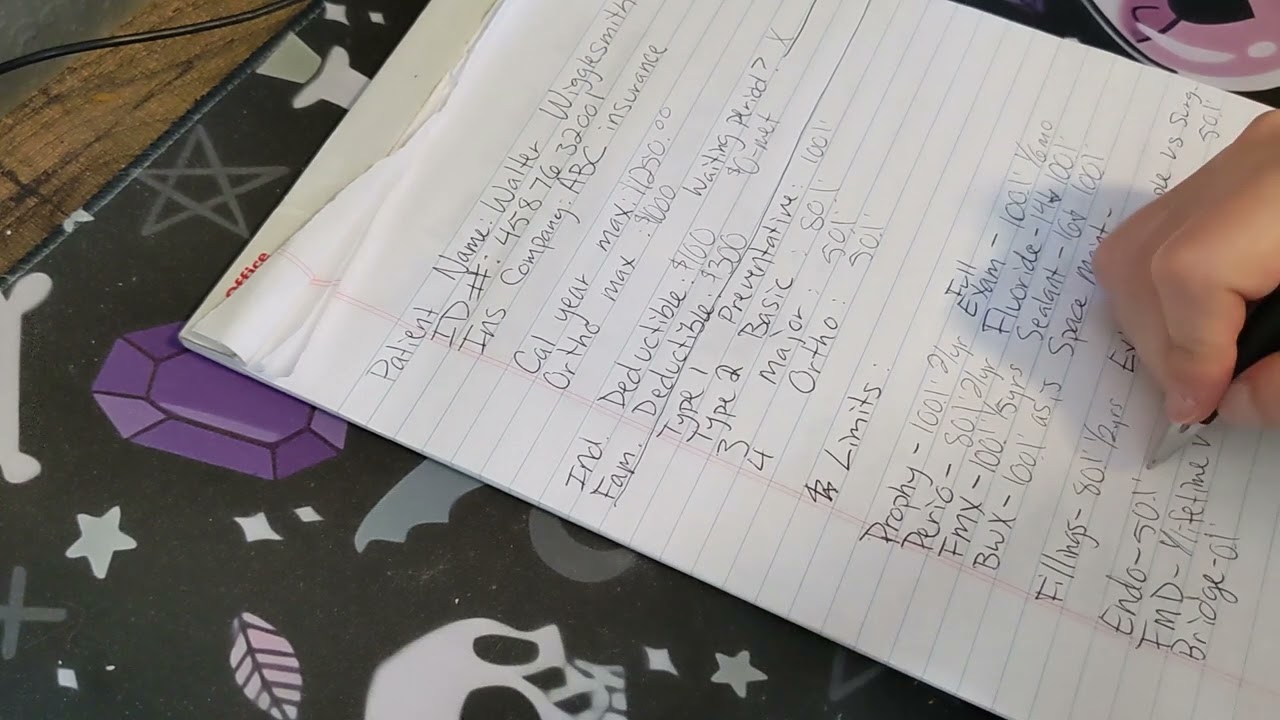 Office
Patient Name: Walter WiggleSmith
ID#: 458 76 32001
Ins Company: ABC insurance
Cal year max: 1250.00
Ortho max : $1000
Ind. Deductible: $100 Waiting period? X
Fam. Deductible: $300 $0 met
Type 1 Preventative: 100%
Type 2 Basic : 80%
3 Major : 50%
4 Ortho: 50%
Limits:
Prophy - 100% 2/yr Full Exam - 100% 1/6mo
Perio - 80% 2/yr Fluoride - 14y 100%
FMX - 100% 1/5yrs Sealant - 16y 100%
BWX - 100% as is Space maint -
Fillings - 80% 1/2yrs vs Surg.
Endo - 50% 50%
FMD - 1/lifetime
Bridge - 0%